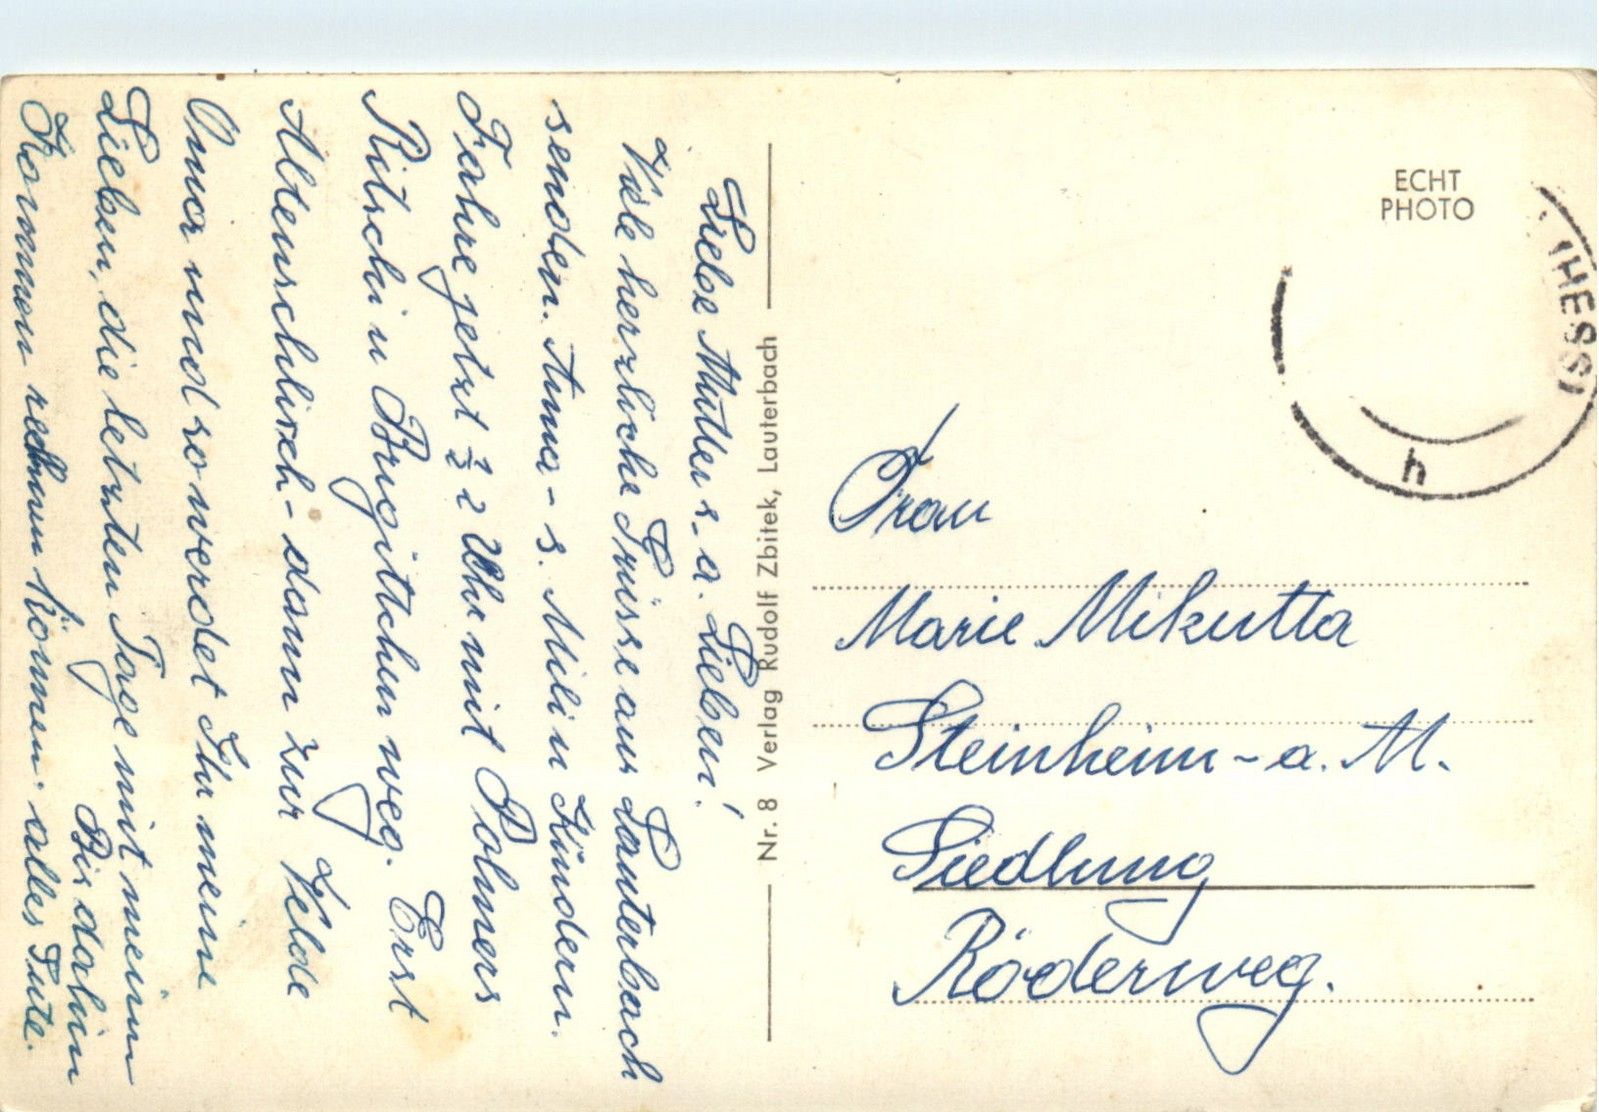 Liebe Mutter u. a. Lieben!
Viele herzliche Grüsse aus Lauterbach
senden. Anna - s. Mili u Kindern.
Fahre jetzt ½ 2 Uhr mit Polmers
Ritschi u Brigittchen weg. Erst
Altenschlirf - dann zur
Oma und so werdet Ihr meine
Lieben, die letzten Tage mit meinem
Kommen rechnen können. Bis dahin
alles Gute.
Nr. 8 Verlag Rudolf Zbitek, Lauterbach
ECHT
PHOTO
(HESS)
h
Frau
Marie Mikutta
Steinheim - a. M.
Siedlung
Röderweg.